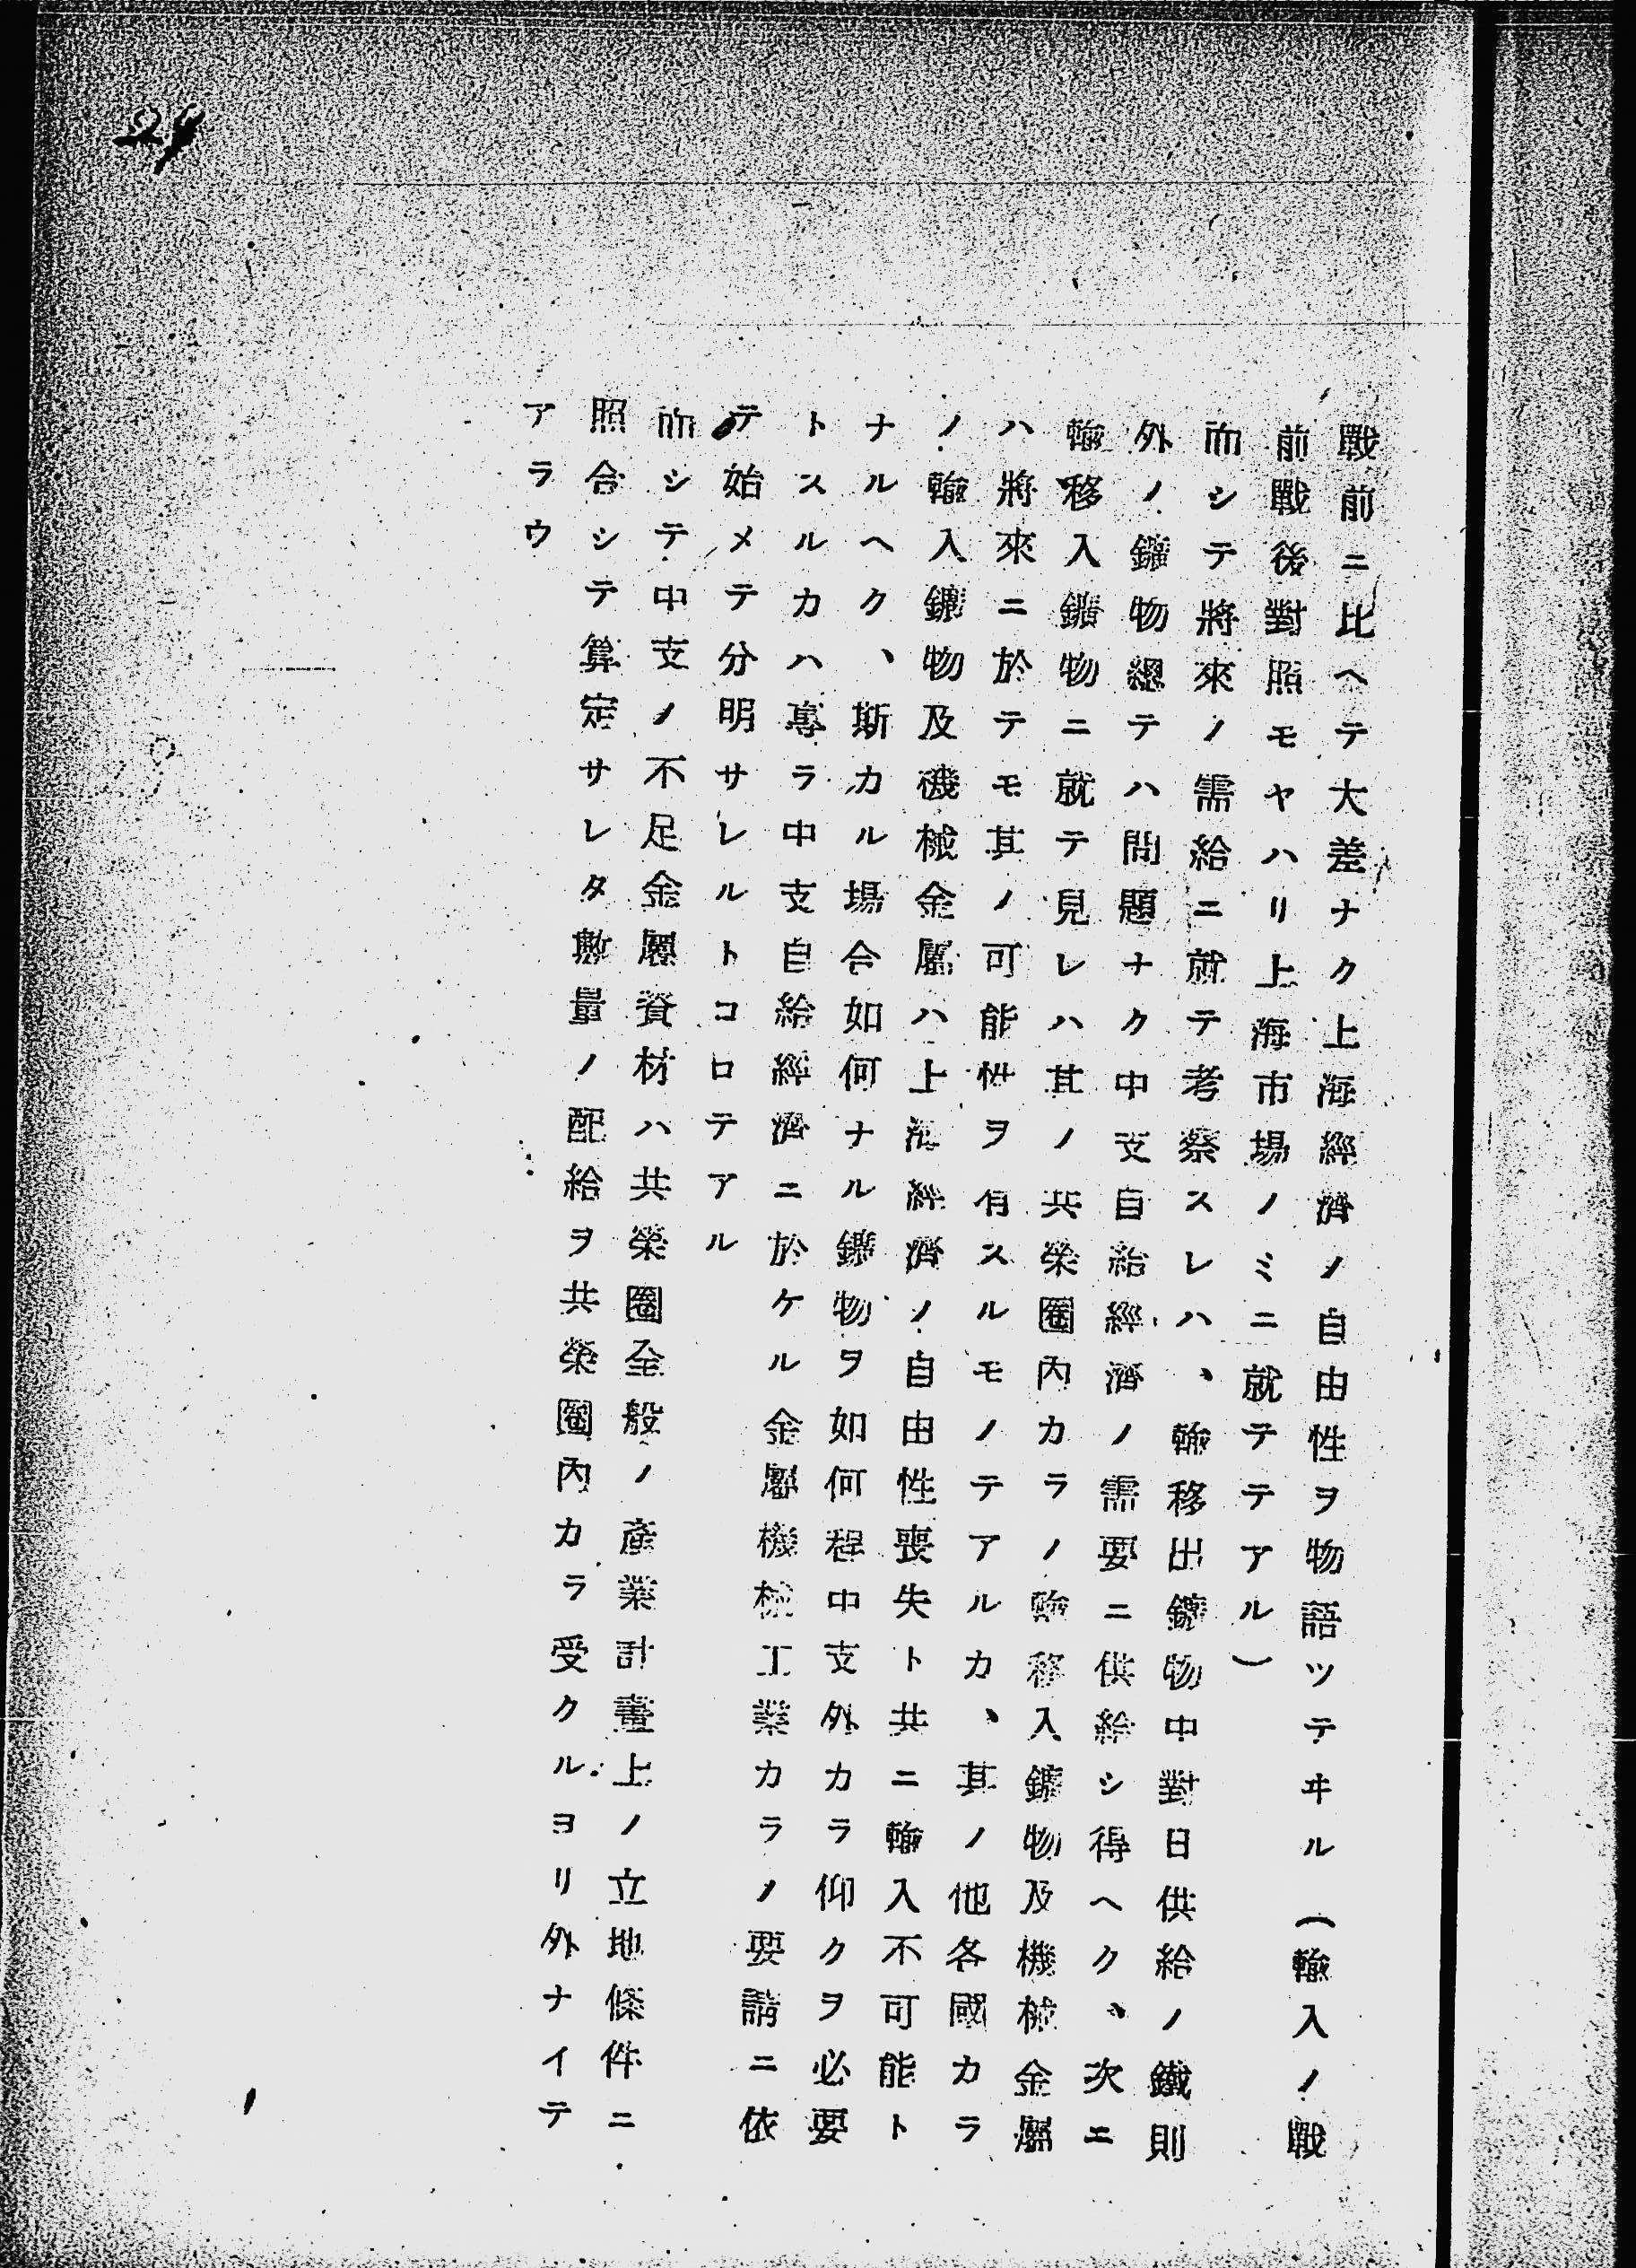 29
戰前ニ比ヘテ大差ナク上海經濟ノ自由性ヲ物語ツテヰル(輸入ノ戰
前戰後對照モヤハリ上海市場ノミニ就テテアル)
而シテ將來ノ需給ニ就テ考察スレハ、輸移出鑛物中對日供給ノ鐵則
外ノ鑛物總テハ問題ナク中支自給經濟ノ需要ニ供給シ得ヘク、次ニ
輸移入鑛物ニ就テ見レハ其ノ共榮圈內カラノ輸移入鑛物及機械金屬
ハ將來ニ於テモ其ノ可能性ヲ有スルモノテアルカ、其ノ他各國カラ
ノ輸入鑛物及機械金屬ハ上海經濟ノ自由性喪失ト共ニ輸入不可能ト
ナルヘク、斯カル場合如何ナル鑛物ヲ如何程中支外カラ仰クヲ必要
トスルカハ專ラ中支自給經濟ニ於ケル金屬機械工業カラノ要請ニ依
テ始メテ分明サレルトコロテアル
而シテ中支ノ不足金屬資材ハ共榮圈全般ノ產業計畫上ノ立地條件ニ
照合シテ算定サレタ數量ノ配給ヲ共榮圈內カラ受クルヨリ外ナイテ
アラウ